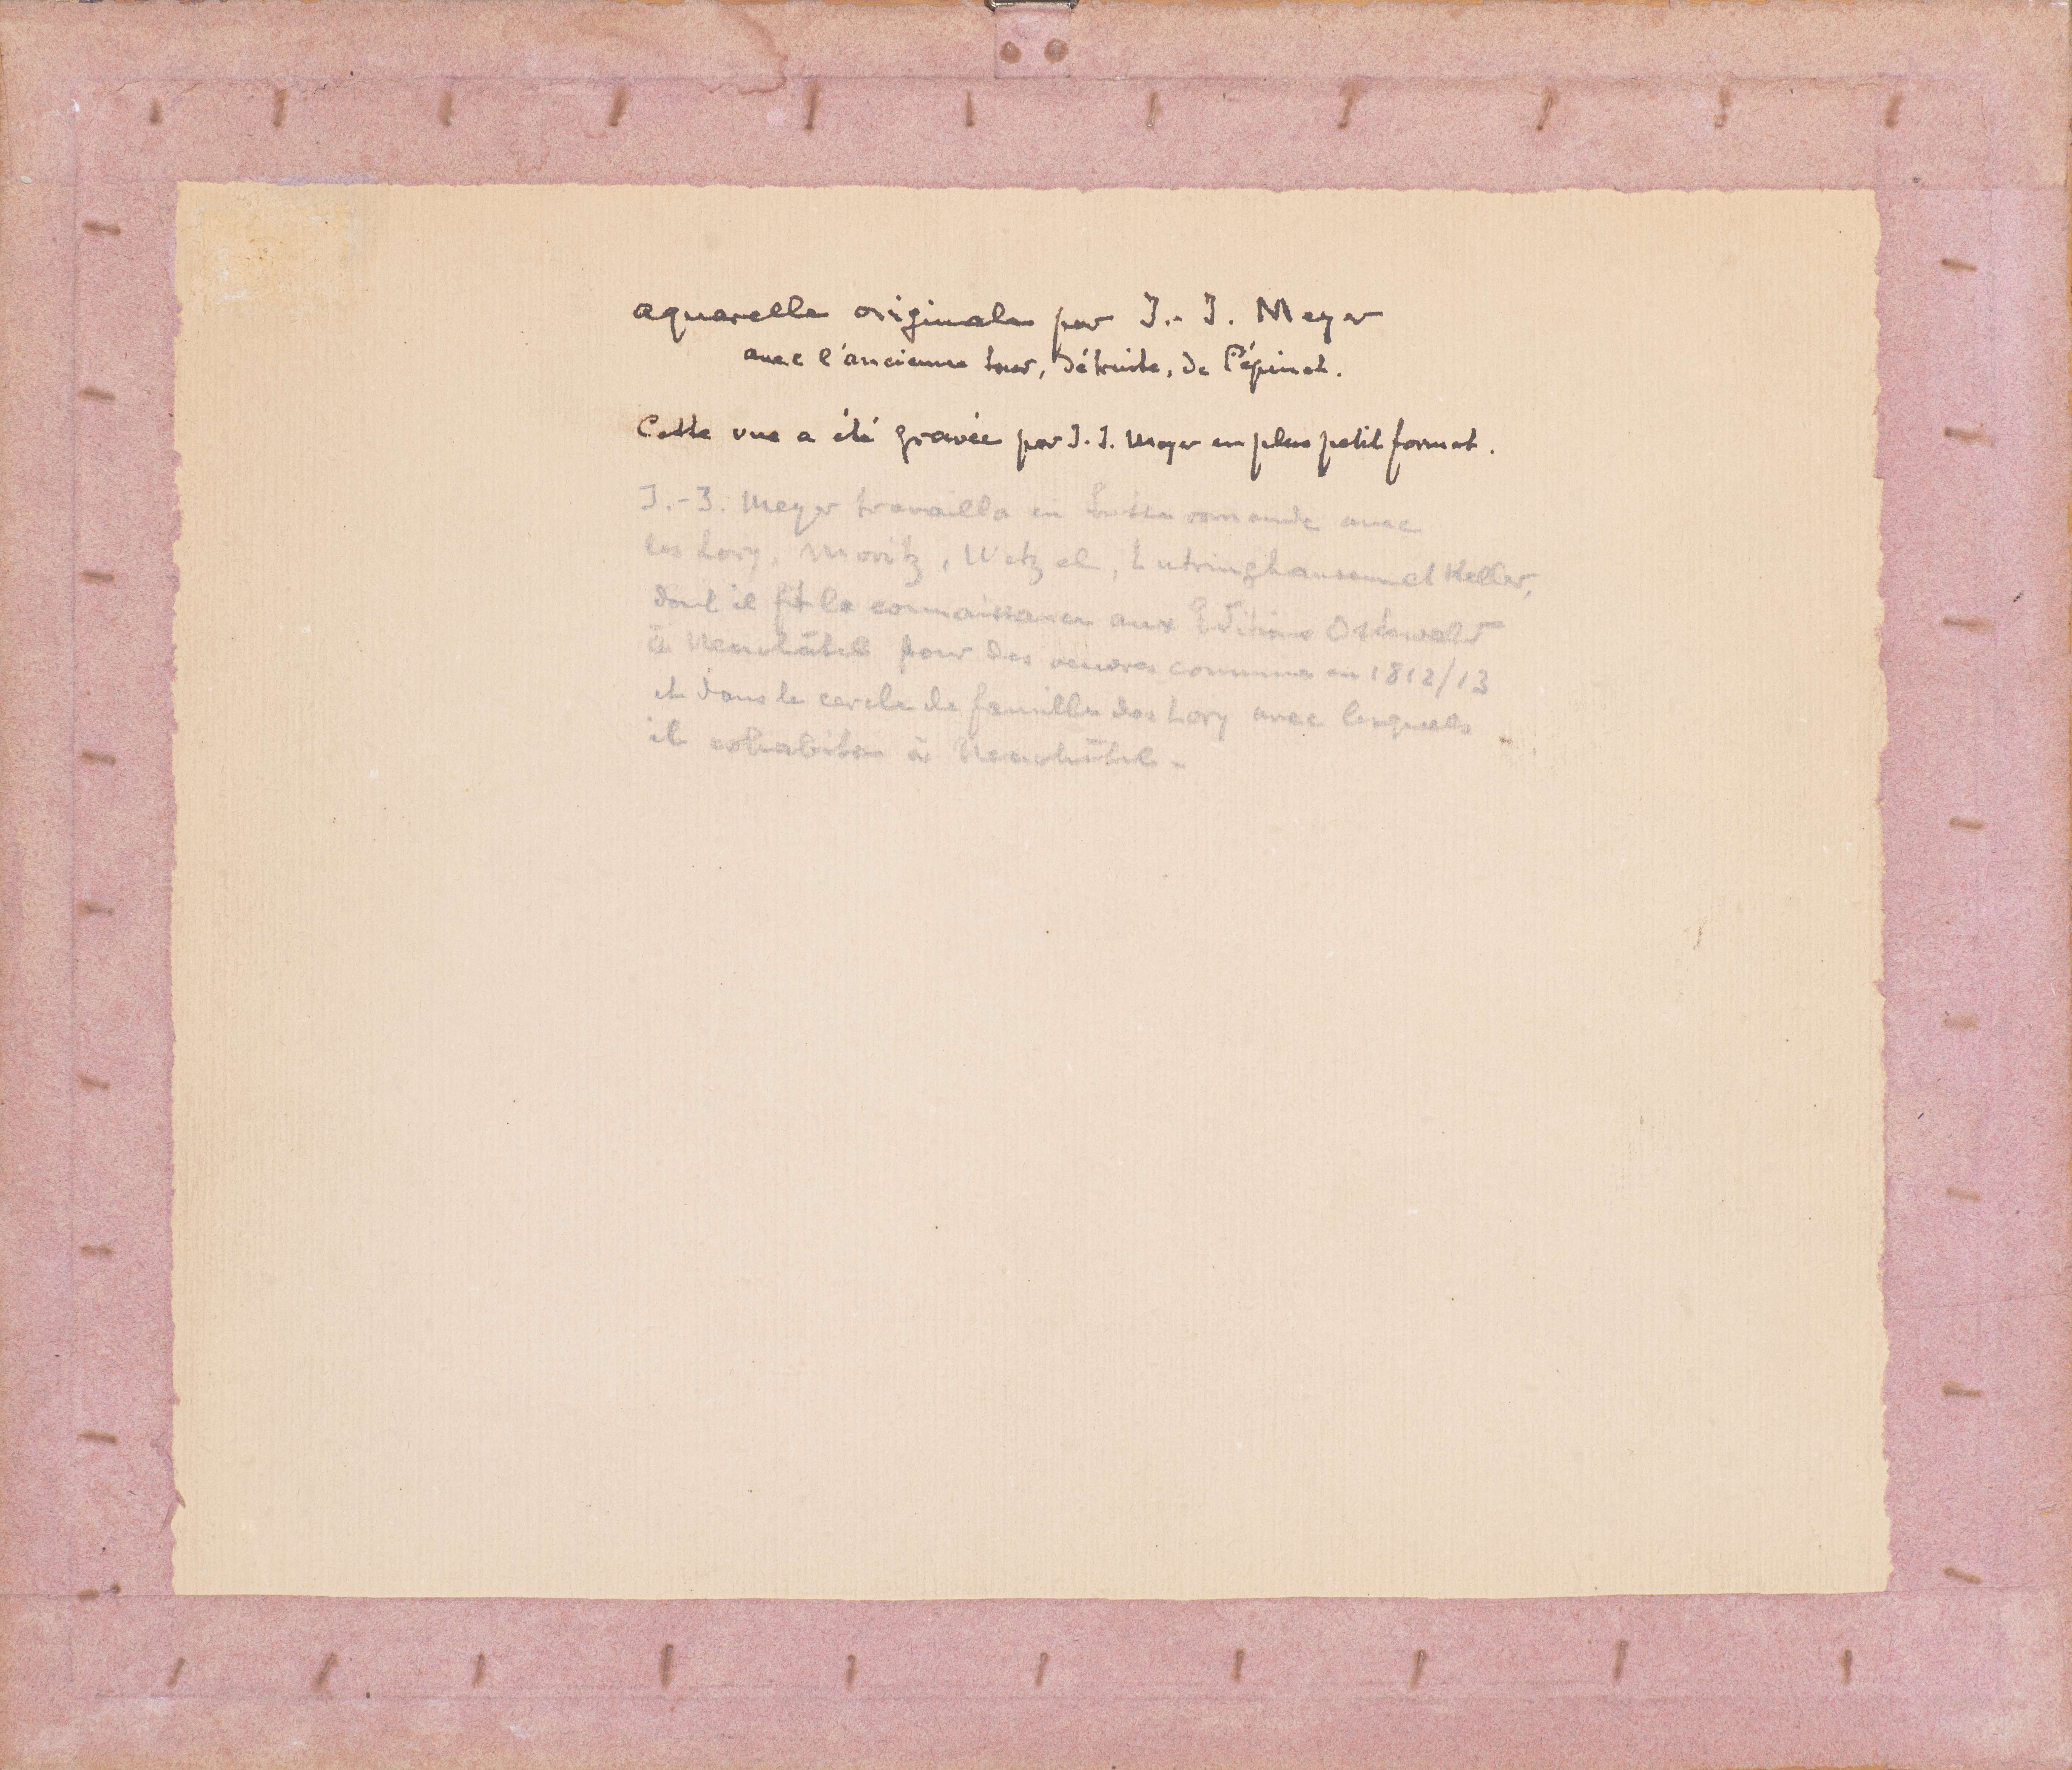 aquarelle originale par J.-J. Meyer
avec l'ancienne tour, détruite, de Pépinet.
Cette vue a été gravée par J.J. Meyer en plus petit format.
J.-J. Meyer travailla en Suisse romande avec
les Lory, Moritz, Wetzel, Lutringhausen et Keller,
dont il fit la connaissance aux Editions Osterwald
à Neuchâtel pour des oeuvres communes en 1812/13
et dans le cercle de famille des Lory avec lesquels
il cohabita à Neuchâtel.